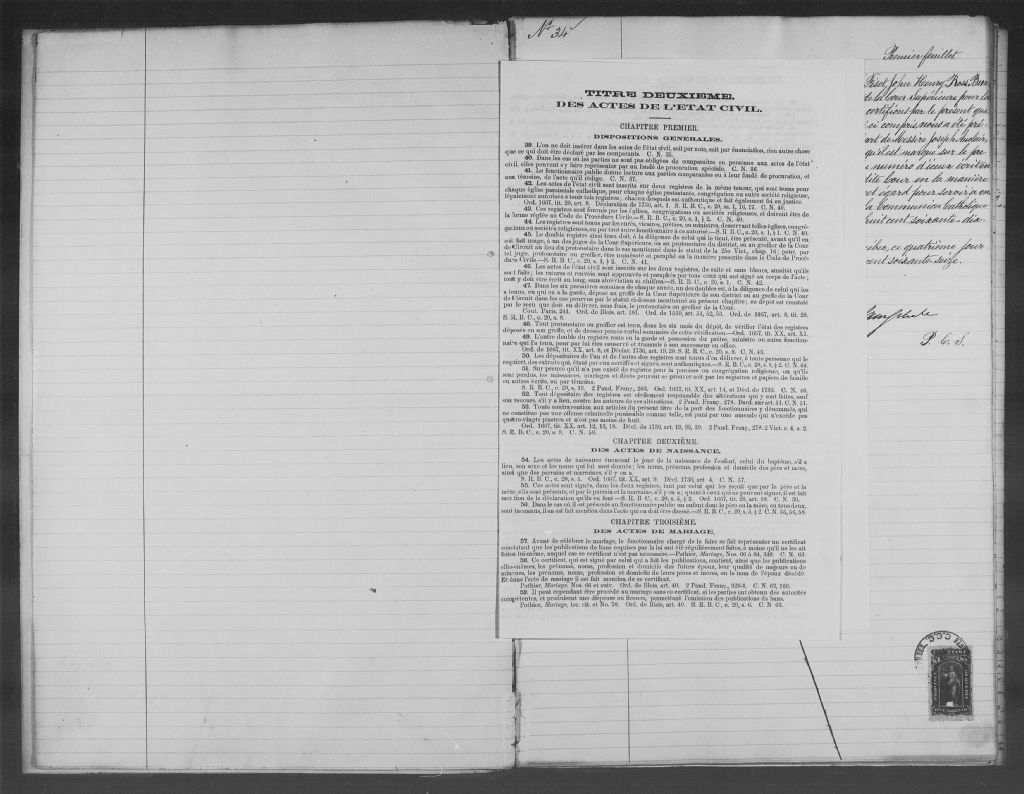 No 34
Premier feuillet
TITRE DEUXIEME.
DES ACTES DE L'ETAT CIVIL.
CHAPITRE PREMIER.
DISPOSITIONS GENERALES.
39. L'on ne doit insérer dans les actes de l'état civil, soit par note, soit par énonciation, rien autre chose
que ce qui doit être déclaré par les comparants. C. N. 35.
40. Dans les cas où les parties ne sont pas obligées de comparaître en personne aux actes de l'état
civil, elles peuvent s'y faire représenter par un fondé de procuration spéciale. C. N. 36.
41. Le fonctionnaire public donne lecture aux parties comparantes ou à leur fondé de procuration, et
aux témoins, de l'acte qu'il rédige. C. N. 37.
42. Les actes de l'état civil sont inscrits sur deux registres de la même teneur, qui sont tenus pour
chaque église paroissiale catholique, pour chaque église protestante, congrégation ou autre société religieuse,
légalement autorisées à tenir tels registres; chacun desquels est authentique et fait également foi en justice.
Ord. 1667, tit. 20, art. 8. Déclaration de 1736, art. 1. S. R. B. C., c. 20, ss. 1, 16, 17. C. N. 40.
43. Ces registres sont fournis par les églises, congrégations ou sociétés religieuses, et doivent être de
la forme réglée au Code de Procédure Civile.—S. R. B. C., c. 20, s. 1, § 2. C. N. 40.
44. Les registres sont tenus par les curés, vicaires, prêtres, ou ministres, desservant telles églises, congré-
gations ou sociétés religieuses, ou par tout autre fonctionnaire à ce autorisé.—S. R. B. C., c. 20, s. 1, § 1. C. N. 40.
45. Le double registre ainsi tenu doit, à la diligence de celui qui le tient, être présenté, avant qu'il en
soit fait usage, à un des juges de la Cour Supérieure, ou au protonotaire du district, ou au greffier de la Cour
de Circuit au lieu du protonotaire dans le cas mentionné dans le statut de la 25e Vict., chap. 16; pour, par
tel juge, protonotaire ou greffier, être numéroté et paraphé en la manière prescrite dans le Code de Procé-
dure Civile.—S. R. B. C., c. 20, s. 1, § 2. C. N. 41.
46. Les actes de l'état civil sont inscrits sur les deux registres, de suite et sans blancs, aussitôt qu'ils
sont faits; les ratures et renvois sont approuvés et paraphés par tous ceux qui ont signé au corps de l'acte;
tout y doit être écrit au long, sans abréviation ni chiffres.—S. R. B. C., c. 20, s. 1. C. N. 42.
47. Dans les six premières semaines de chaque année, un des doubles est, à la diligence de celui qui les
a tenus, ou qui en a la garde, déposé au greffe de la Cour Supérieure de son district ou au greffe de la Cour
de Circuit dans les cas pourvus par le statut ci-dessus mentionné au présent chapitre; ce dépôt est constaté
par le reçu que doit en délivrer, sans frais, le protonotaire ou greffier de la Cour.
Cout. Paris, 241. Ord. de Blois, art. 181. Ord. de 1539, art. 51, 52, 53. Ord. de 1667, art. 8, tit. 20.
S. R. B. C., c. 20, s. 8.
48. Tout protonotaire ou greffier est tenu, dans les six mois du dépôt, de vérifier l'état des registres
déposés en son greffe, et de dresser procès-verbal sommaire de cette vérification.—Ord. 1667, tit. XX, art. XI.
49. L'autre double du registre reste en la garde et possession du prêtre, ministre ou autre fonction-
naire qui l'a tenu, pour par lui être conservé et transmis à son successeur en office.
Ord. de 1667, tit. XX, art. 8, et Déclar. 1736, art. 19, 20. S. R. B. C., c. 20, s. 8. C. N. 43.
50. Les dépositaires de l'un et de l'autre des registres sont tenus d'en délivrer, à toute personne qui le
requiert, des extraits qui, étant par eux certifiés et signés, sont authentiques.—S. R. B. C., c. 20, s. 8, § 2. C. N. 44.
51. Sur preuve qu'il n'a pas existé de registre pour la paroisse ou congrégation religieuse, ou qu'ils
sont perdus, les naissances, mariages et décès peuvent se prouver soit par les registres et papiers de famille
ou autres écrits, ou par témoins.
S. R. B. C., c. 20, s. 13. 2 Pand. Franç., 263. Ord. 1667, tit. XX, art. 14, et Décl. de 1736. C. N. 46.
52. Tout dépositaire des registres est civilement responsable des altérations qui y sont faites, sauf
son recours, s'il y a lieu, contre les auteurs de ces altérations. 2 Pand. Franç., 278. Dard. sur art. 51. C. N. 51.
53. Toute contravention aux articles du présent titre de la part des fonctionnaires y dénommés, qui
ne constitue pas une offense criminelle punissable comme telle, est puni par une amende qui n'excède pas
quatre-vingts piastres et n'est pas moins de huit.
Ord. 1667, tit. XX, art. 12, 13, 18. Décl. de 1736, art. 19, 33, 39. 2 Pand. Franç., 278. 2 Vict. c. 4, s. 2.
S. R. B. C., c. 20, s. 9. C. N. 50.
CHAPITRE DEUXIÈME.
DES ACTES DE NAISSANCE.
54. Les actes de naissance énoncent le jour de la naissance de l'enfant, celui du baptême, s'il a
lieu, son sexe et les noms qui lui sont donnés; les noms, prénoms, profession et domicile des père et mère,
ainsi que des parrains et marraines, s'il y en a.
S. R. B. C., c. 20, s. 5. Ord. 1667, tit. XX, art. 9. Décl. 1736, art. 4. C. N. 57.
55. Ces actes sont signés, dans les deux registres, tant par celui qui les reçoit que par le père et la
mère, s'ils sont présents, et par le parrain et la marraine, s'il y en a; quant à ceux qui ne peuvent signer, il est fait
mention de la déclaration qu'ils en font.—S. R. B. C., c. 20, s. 5, § 2. Ord. 1667, tit. 20, art. 10. C. N. 39.
56. Dans le cas où il est présenté au fonctionnaire public un enfant dont le père ou la mère, ou tous deux,
sont inconnus, il en est fait mention dans l'acte qui en doit être dressé.—S. R. B. C., c. 20, s. 5, § 2. C. N. 55, 56, 58.
CHAPITRE TROISIÈME.
DES ACTES DE MARIAGE.
57. Avant de célébrer le mariage, le fonctionnaire chargé de le faire se fait représenter un certificat
constatant que les publications de bans requises par la loi ont été régulièrement faites, à moins qu'il ne les ait
faites lui-même, auquel cas ce certificat n'est pas nécessaire.—Pothier, Mariage, Nos. 66 à 84, 349. C. N. 63.
58. Ce certificat, qui est signé par celui qui a fait les publications, contient, ainsi que les publications
elles-mêmes, les prénoms, noms, profession et domicile des futurs époux, leur qualité de majeurs ou de
mineurs, les prénoms, noms, profession et domicile de leurs pères et mères, ou le nom de l'époux décédé.
Et dans l'acte de mariage il est fait mention de ce certificat.
Pothier, Mariage, Nos. 66 et suiv. Ord. de Blois, art. 40. 2 Pand. Franç., 320-2. C. N. 63, 166.
59. Il peut cependant être procédé au mariage sans ce certificat, si les parties ont obtenu des autorités
compétentes, et produisent une dispense ou licence, permettant l'omission des publications de bans.
Pothier, Mariage, loc. cit. et No. 70. Ord. de Blois, art. 40. S. R. B. C., c. 20, s. 6. C. N. 63.
Fiset, John Henry Ross Bur
de la Cour Supérieure pour la
certifions par le présent que
ci compris, nous a été pré
art de Messire Joseph
qu'il est marqué sur le pre
numéro d'iceux écrit en
dite Cour en la manière
cet égard pour servir à en
la Communion Catholique
huit cent soixante-dix
ce quatrième jour
cent soixante seize.
P. C. S.
ONE DOLLAR